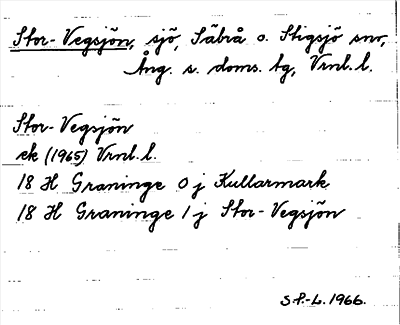 Stor-Vegsjön, sjö, Säbrå o. Stigsjö snr,
Ång. s. doms. tg, Vrnl. l.
Stor-Vegsjön
ek (1965) Vrnl. l.
18 H Graninge 0 j Kullarmark
18 H Graninge 1 j Stor-Vegsjön
S P.-L. 1966.